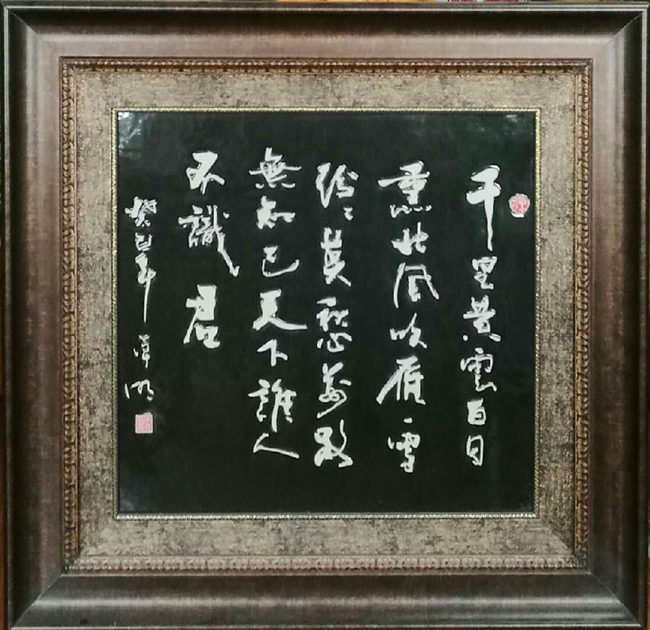 千里黃雲白日
熏北風吹雁雪
紛々莫愁前路
無知己天下誰人
不識君
癸巳年